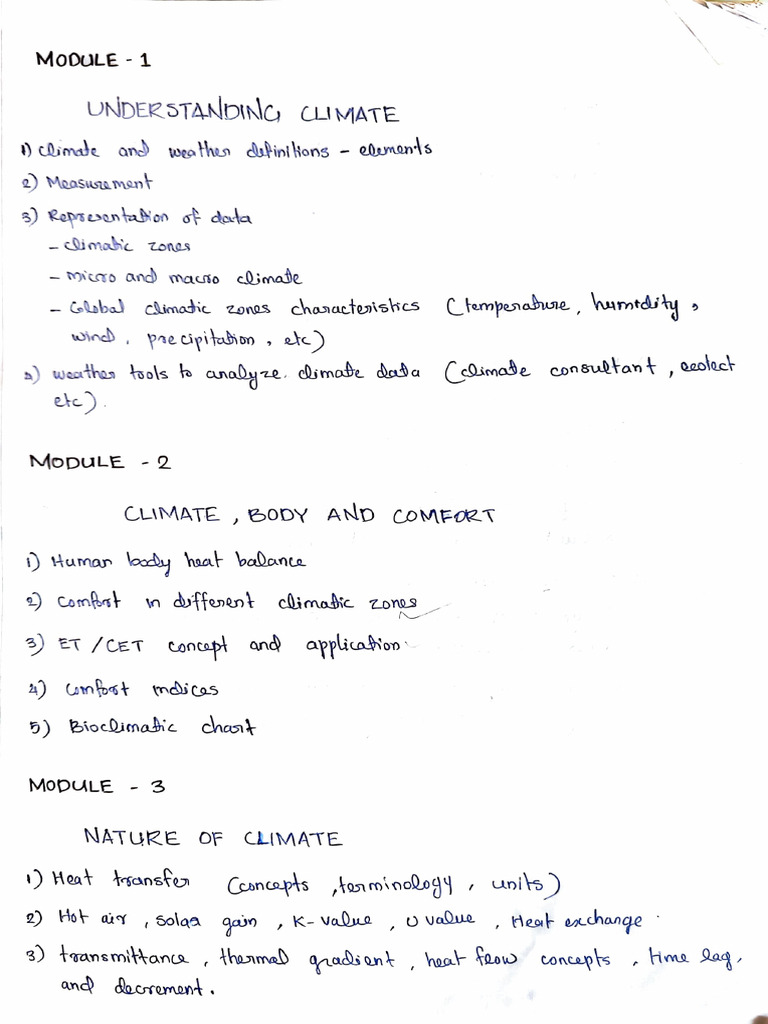 MODULE - 1
UNDERSTANDING CLIMATE
1) climate and weather definitions - elements
2) Measurement
3) Representation of data
- climatic zones
- micro and macro climate
- Global climatic zones characteristics (temperature, humidity,
wind, precipitation, etc)
4) weather tools to analyze climate data (climate consultant, ecotect
etc).
MODULE - 2
CLIMATE, BODY AND COMFORT
1) Human body heat balance
2) comfort in different climatic zones
3) ET/CET concept and application
4) comfort indices
5) Bioclimatic chart
MODULE - 3
NATURE OF CLIMATE
1) Heat transfer (concepts, terminology, units)
2) Hot air, solar gain, K-value, U value, Heat exchange.
3) transmittance, thermal gradient, heat flow concepts, time lag,
and decrement.